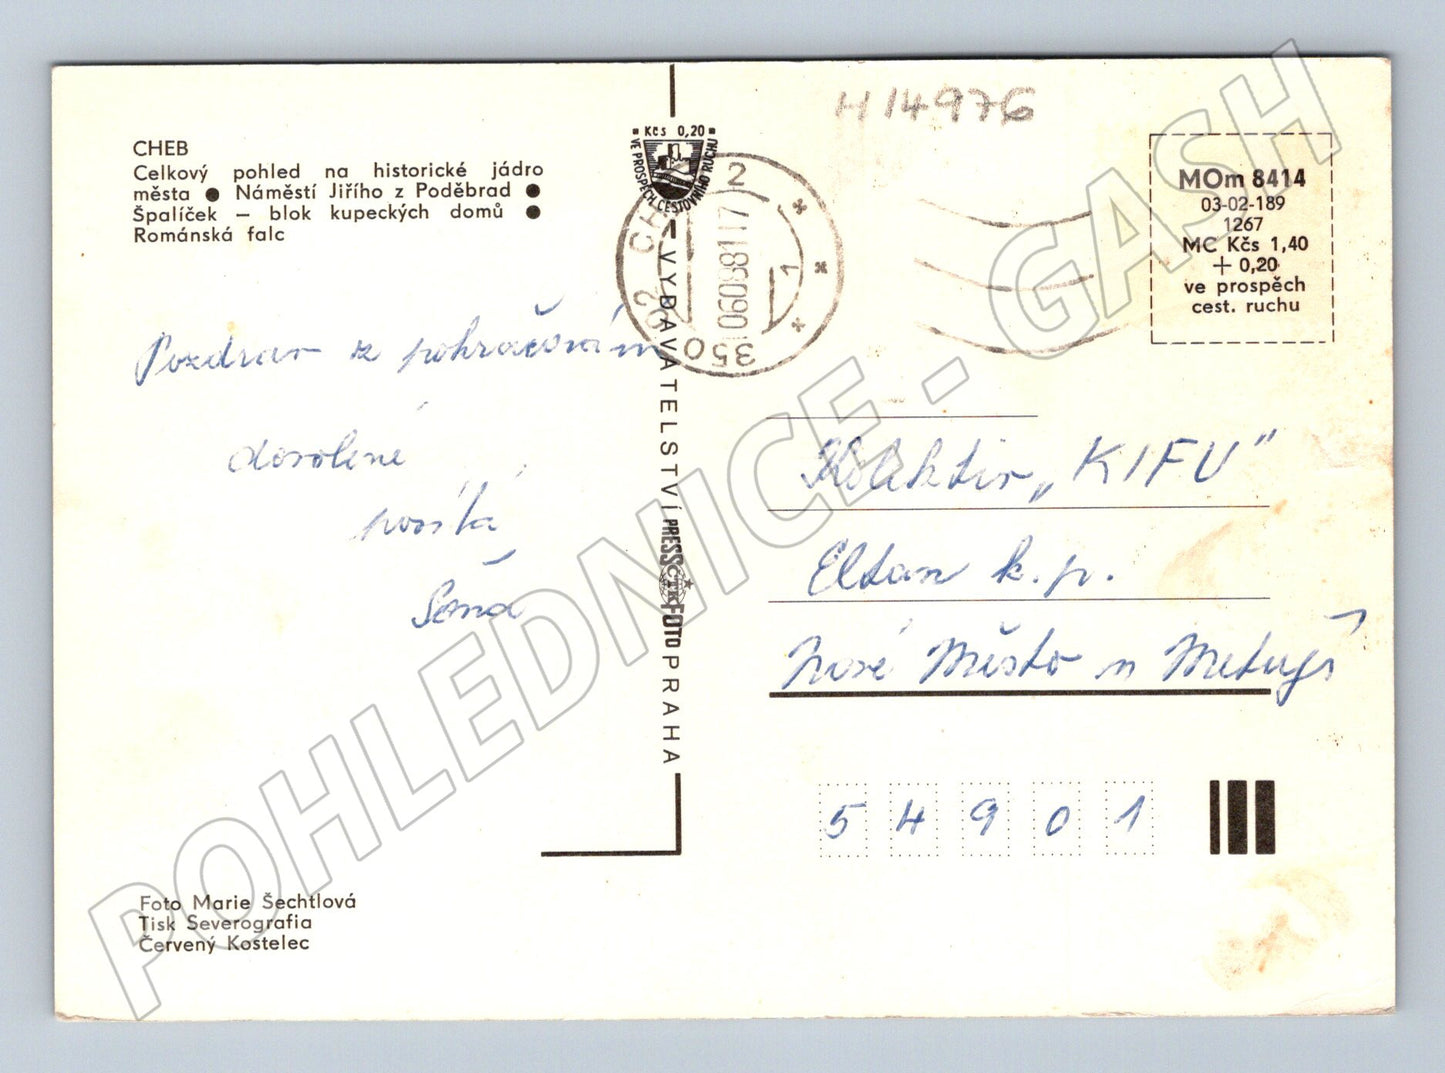 H 14976
CHEB
Celkový pohled na historické jádro
města ● Náměstí Jiřího z Poděbrad ●
Špalíček – blok kupeckých domů ●
Románská falc
Kčs 0,20
VE PROSPĚCH CESTOVNÍHO RUCHU
350 02 CHEB 2
MOm 8414
03-02-189
1267
MC Kčs 1,40
+ 0,20
ve prospěch
cest. ruchu
Pozdrav z pokračování
dovolené
posílá
VYDAVATELSTVÍ PRESSFOTO PRAHA
ČTK
Kolektiv „KIFU"
Eltan k.p.
Nové Město n Metují
54901
Foto Marie Šechtlová
Tisk Severografia
Červený Kostelec
POHLEDNICE - GASH